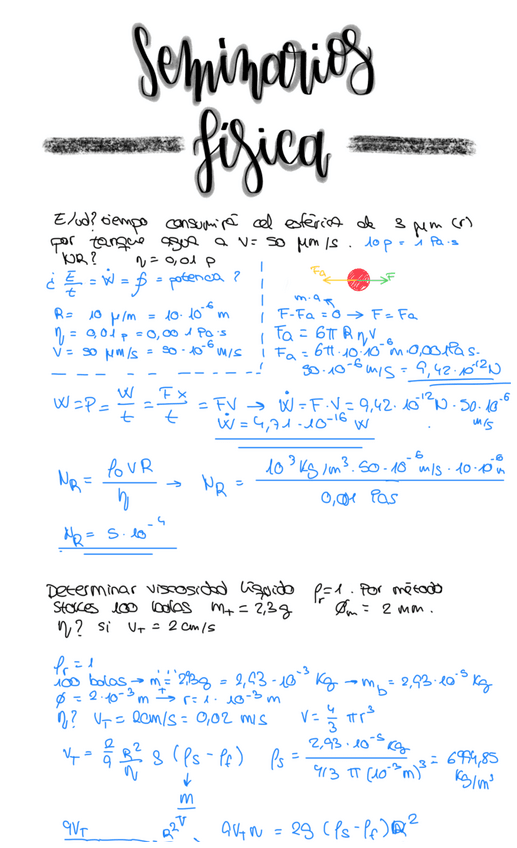 Seminarios
física
E/ud? tiempo consumirá cel esférica de 3 μm (r)
por tanque agua a V= 50 μm/s. 10p = 1 Pa·s
NR? η = 0,01 p
¿ E/t = Ẇ = ℘ = potencia ?
Fa F
m·a
R = 10 μ/m = 10·10⁻⁶ m
F-Fa = 0 → F = Fa
η = 0,01 p = 0,001 Pa·s
Fa = 6π R η V
V = 50 μm/s = 50·10⁻⁶ m/s
Fa = 6π·10·10⁻⁶ m·0,001Pa s·
50·10⁻⁶ m/s = 9,42·10⁻¹² N
W = P = W/t = Fx/t = FV → Ẇ = F·V = 9,42·10⁻¹² N·50·10⁻⁶ m/s
Ẇ = 4,71·10⁻¹⁶ W
NR = ρ₀VR/η → NR = 10³ Kg/m³·50·10⁻⁶ m/s·10·10⁻⁶ m / 0,001 Pas
NR = 5·10⁻⁴
Determinar viscosidad líquido ρr = 1. Por método
Stokes 100 bolas mT = 2,93g Øm = 2 mm.
η? si VT = 2 cm/s
ρr = 1
100 bolas → m = 2,93g = 2,93·10⁻³ Kg → mb = 2,93·10⁻⁵ Kg
Ø = 2·10⁻³ m → r = 1·10⁻³ m
η? VT = 2cm/s = 0,02 m/s V = 4/3 πr³
VT = 2/9 R²/η g (ρs - ρf) ρs = 2,93·10⁻⁵ Kg / 4/3 π (10⁻³m)³ = 6994,85 Kg/m³
m/V
9VT R² 9VTη = 2g (ρs-ρf)R²